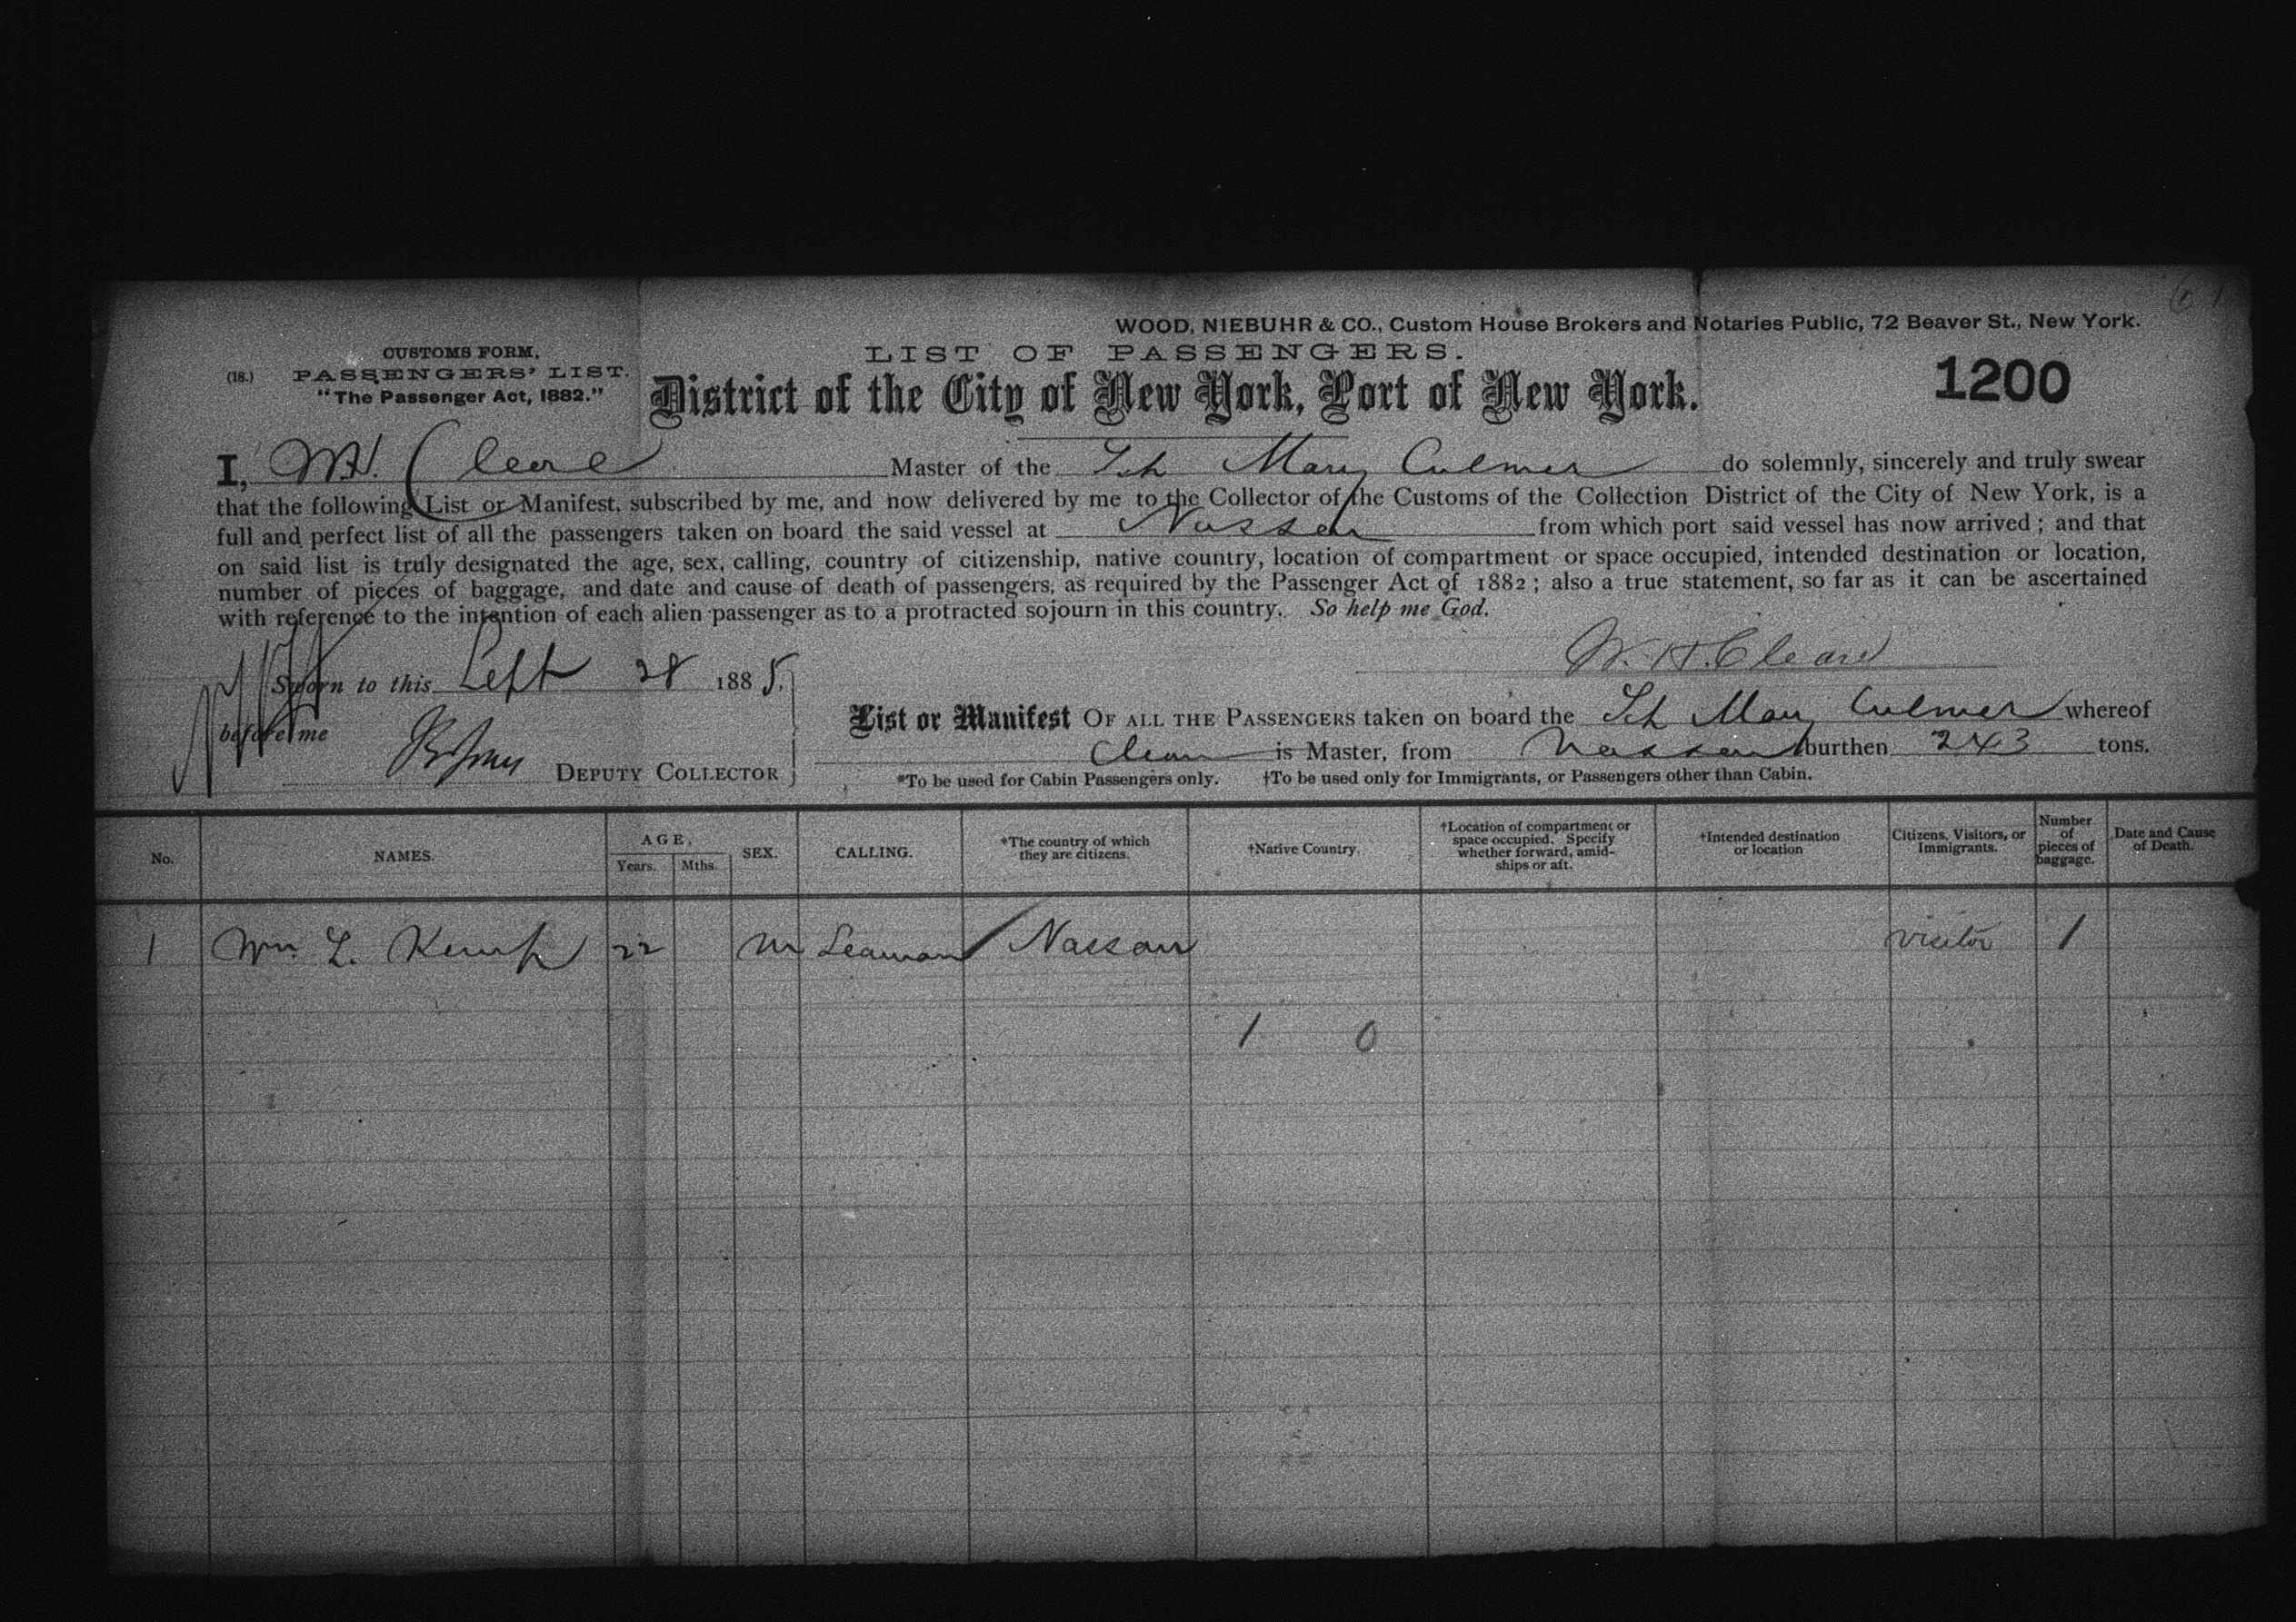 WOOD, NIEBUHR & CO., Custom House Brokers and Notaries Public, 72 Beaver St., New York.
CUSTOMS FORM,
(18.) PASSENGERS' LIST.
"The Passenger Act, 1882."
LIST OF PASSENGERS.
District of the City of New York, Port of New York.
1200
I, W.H. Cleare Master of the Sch Mary Culmer do solemnly, sincerely and truly swear
that the following List or Manifest, subscribed by me, and now delivered by me to the Collector of the Customs of the Collection District of the City of New York, is a
full and perfect list of all the passengers taken on board the said vessel at Nassau from which port said vessel has now arrived; and that
on said list is truly designated the age, sex, calling, country of citizenship, native country, location of compartment or space occupied, intended destination or location,
number of pieces of baggage, and date and cause of death of passengers, as required by the Passenger Act of 1882; also a true statement, so far as it can be ascertained
with reference to the intention of each alien passenger as to a protracted sojourn in this country. So help me God.
W. H. Cleare
Sworn to this Sept 28 1885.
before me
DEPUTY COLLECTOR
List or Manifest OF ALL THE PASSENGERS taken on board the Sch Mary Culmer whereof
is Master, from Nassau burthen 243 tons.
*To be used for Cabin Passengers only. †To be used only for Immigrants, or Passengers other than Cabin.
No. NAMES. AGE, Years. Mths. SEX. CALLING. *The country of which they are citizens. †Native Country. †Location of compartment or space occupied. Specify whether forward, amidships or aft. †Intended destination or location Citizens, Visitors, or Immigrants. Number of pieces of baggage. Date and Cause of Death.
1 Wm. L. Kemp 22 M Seaman Nassau visitor 1
1 0